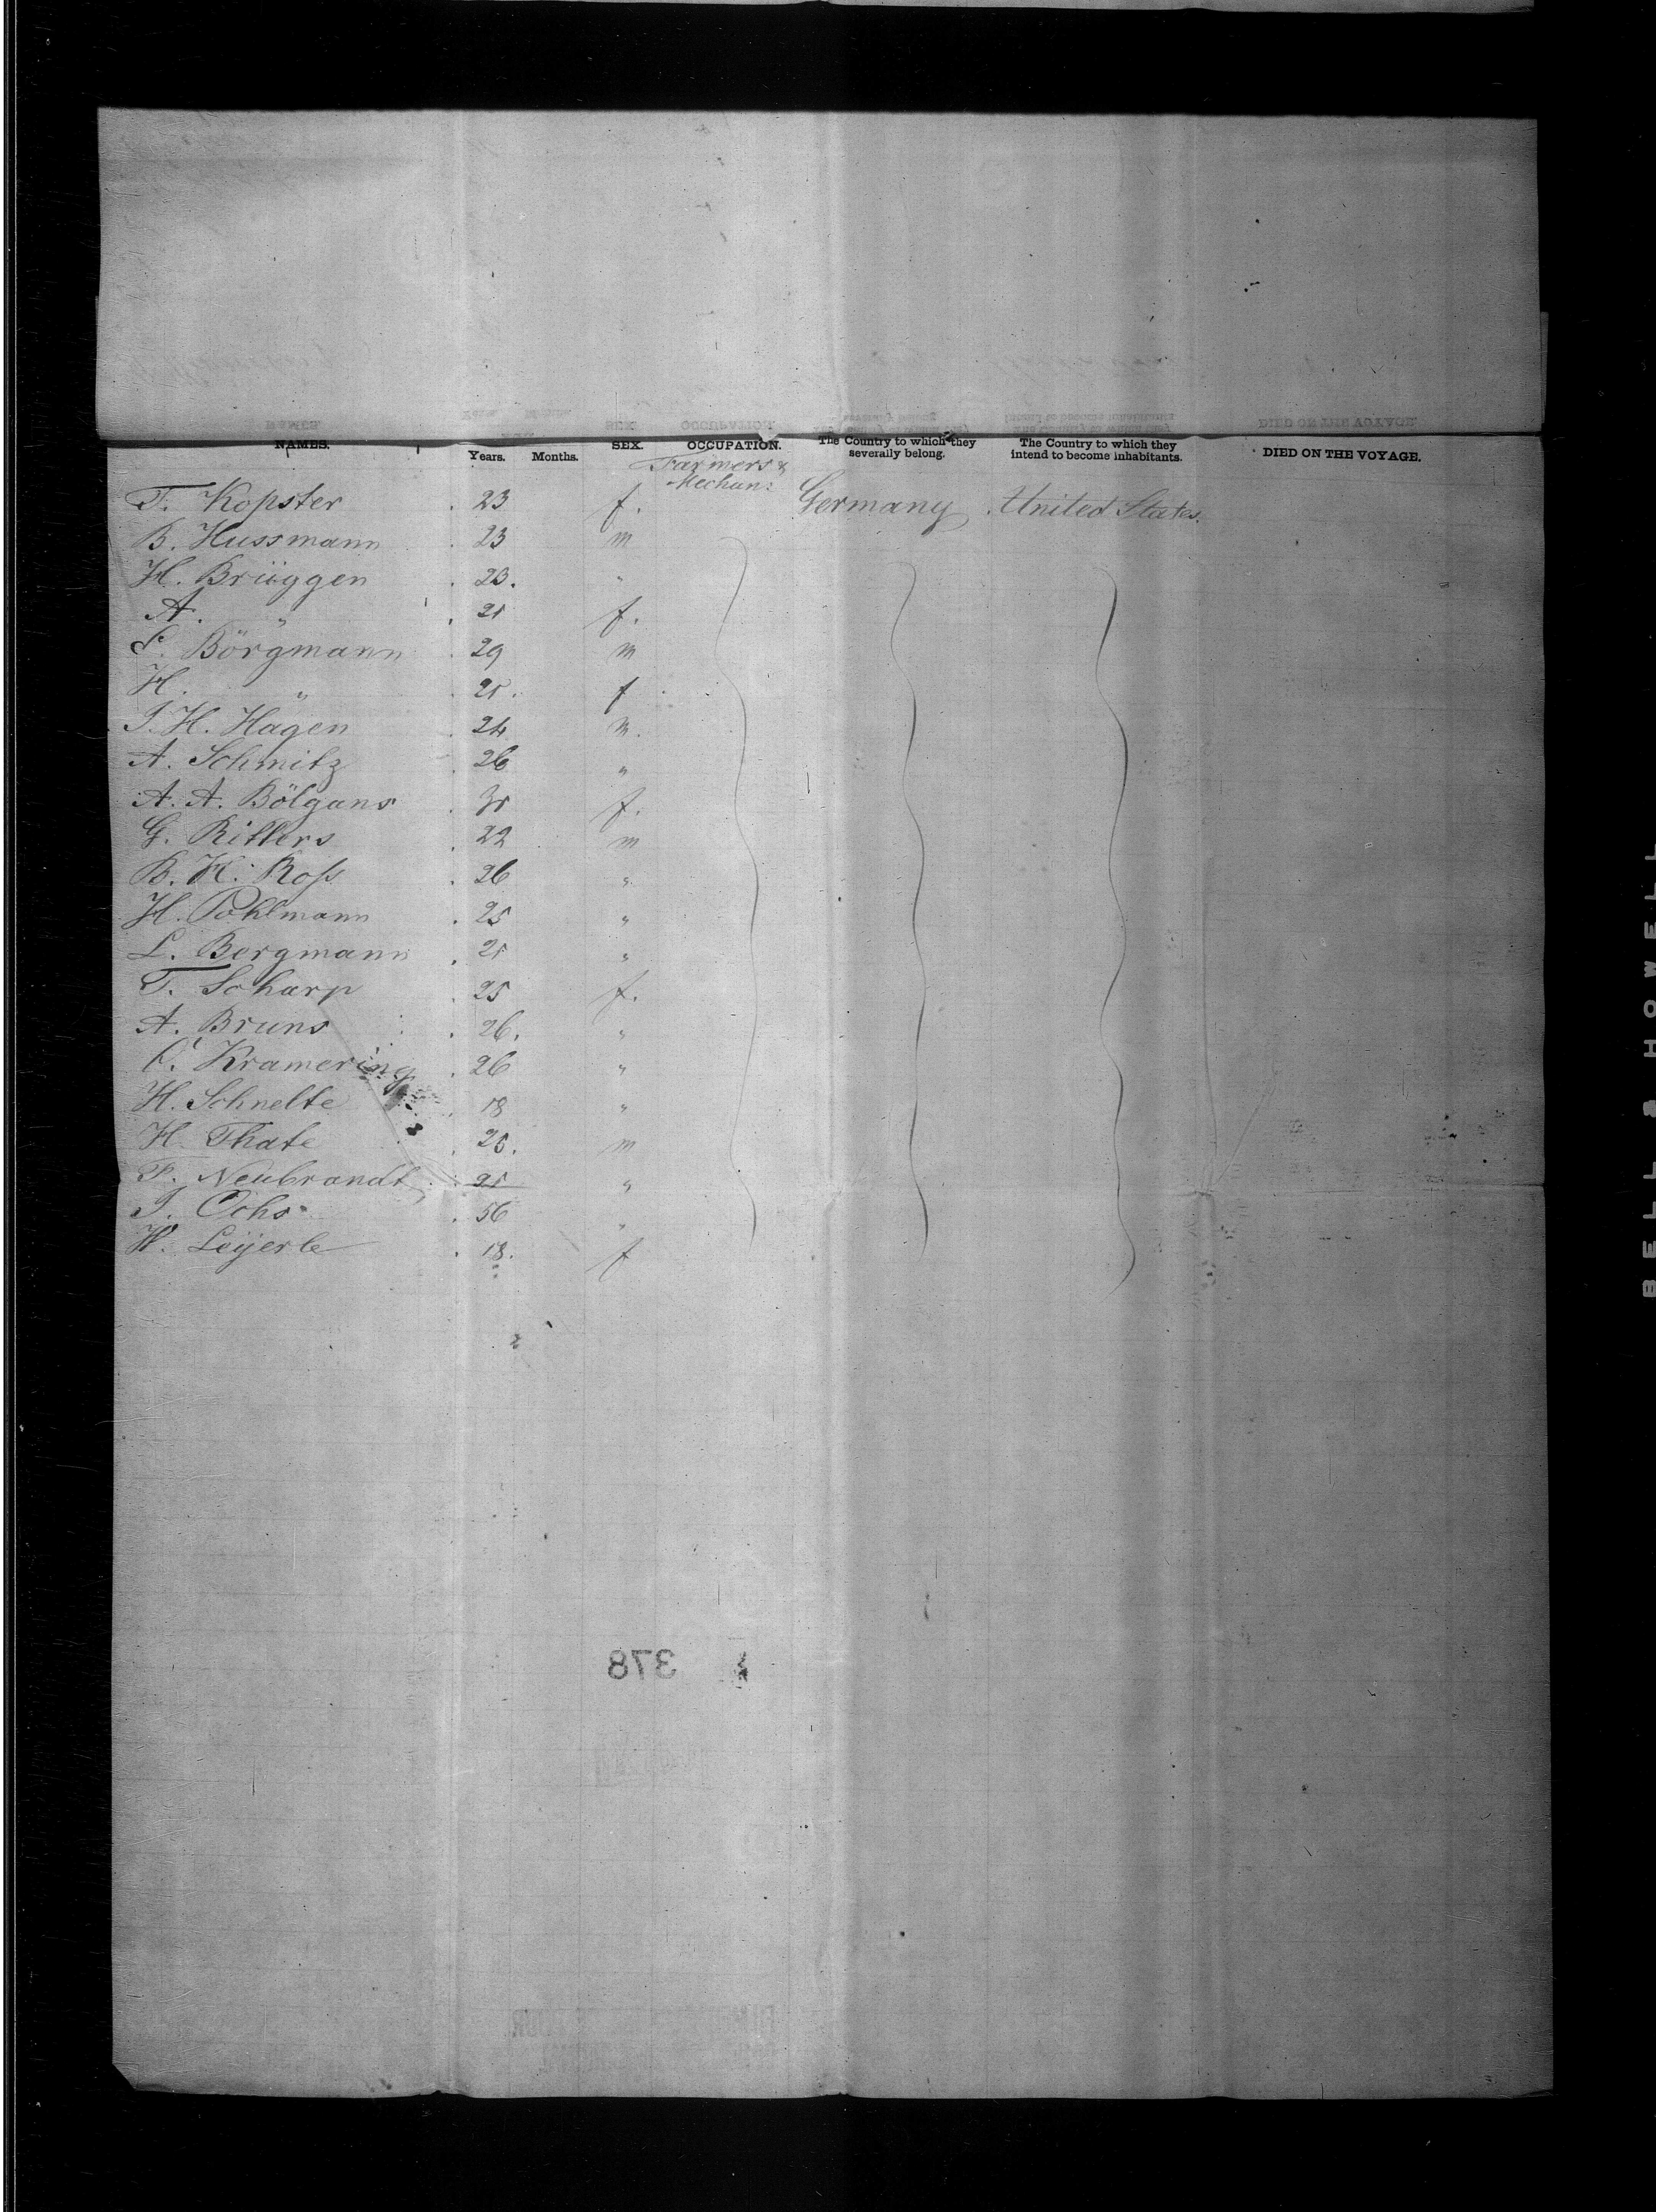 NAMES. Years. Months. SEX. OCCUPATION. The Country to which they severally belong. The Country to which they intend to become inhabitants. DIED ON THE VOYAGE.
Farmers &
Mechans
T. Kopster . 23 f. Germany United States.
B. Hussmann . 23 m
H. Brüggen . 23. "
A. " . 21 f.
Börgmann . 29 m
H. " . 21. f
J. H. Hagen . 24 m.
A. Schmitz . 26 "
A. A. Bölgans . f.
G. Ritters . 22 m
B. H. Ross . 26 "
H. Pohlmann . 25 "
L. Bergmann . 21 "
T. Scharp . 25 f.
A. Bruns . 26. "
C. Kramering . 26 "
H. Schnelte . 18 "
H. Thate . 25. m
F. Neubrandt . 21 "
J. Ochs . 56 "
W. Leijerle . 18. f
378
BELL & HOWELL